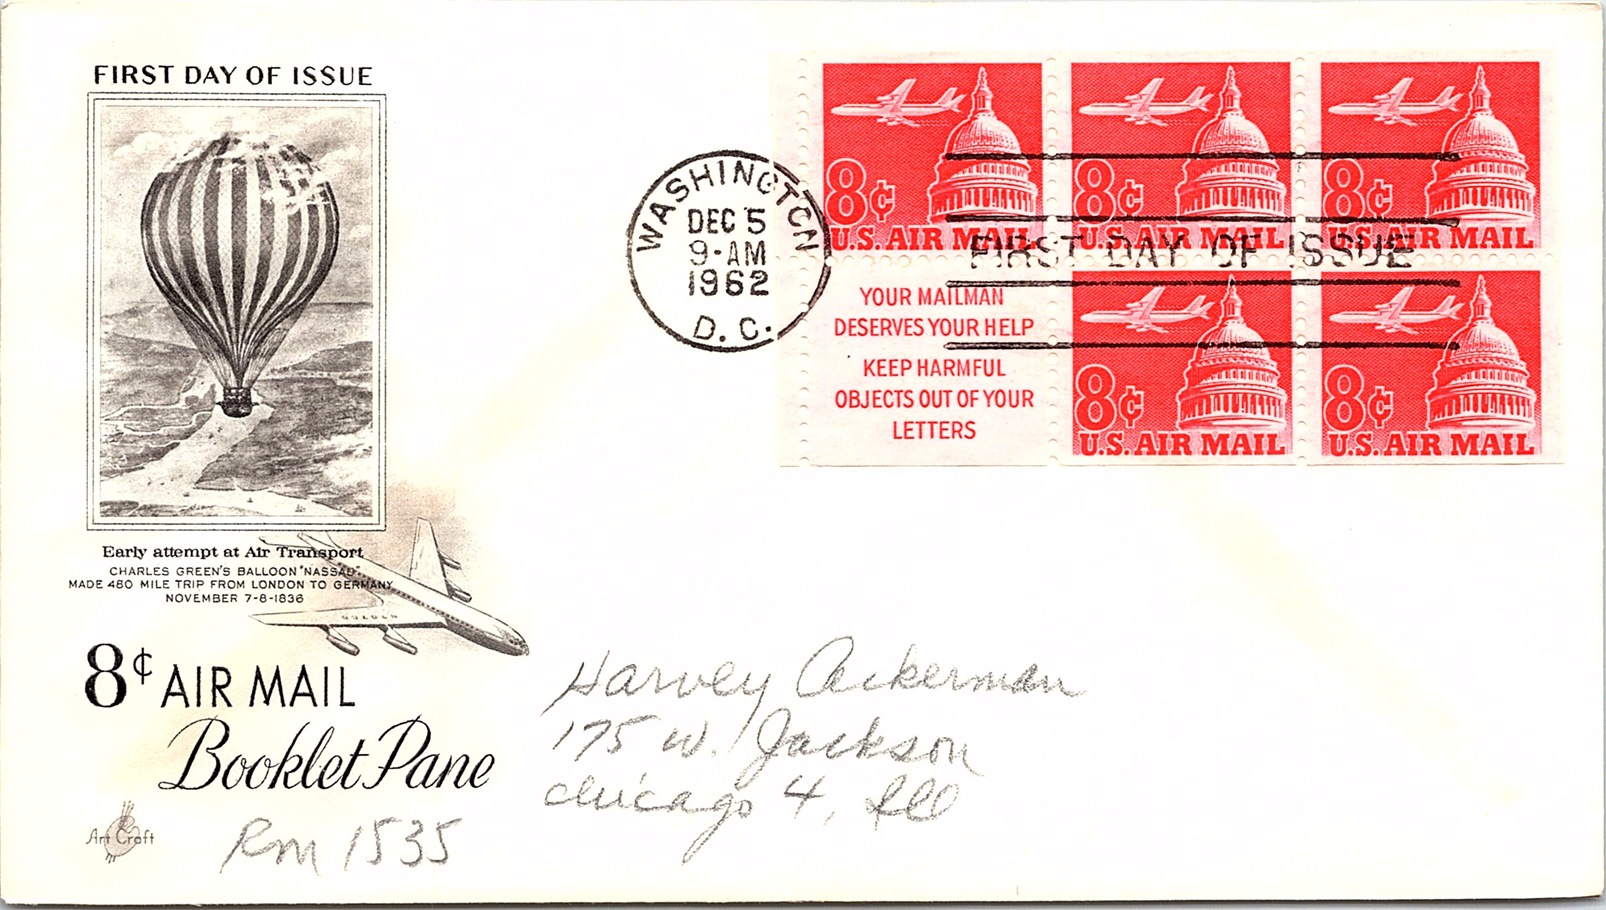 FIRST DAY OF ISSUE
Early attempt at Air Transport
CHARLES GREEN'S BALLOON "NASSAU"
MADE 480 MILE TRIP FROM LONDON TO GERMANY
NOVEMBER 7-8-1836
8¢ AIR MAIL
Booklet Pane
Art Craft
Rm 1535
WASHINGTON
DEC 5
9-AM
1962
D. C.
8¢
U.S. AIR MAIL
8¢
U.S. AIR MAIL
8¢
U.S. AIR MAIL
FIRST DAY OF ISSUE
YOUR MAILMAN
DESERVES YOUR HELP
KEEP HARMFUL
OBJECTS OUT OF YOUR
LETTERS
8¢
U.S. AIR MAIL
8¢
U.S. AIR MAIL
Harvey Ackerman
175 W. Jackson
Chicago 4, Ill